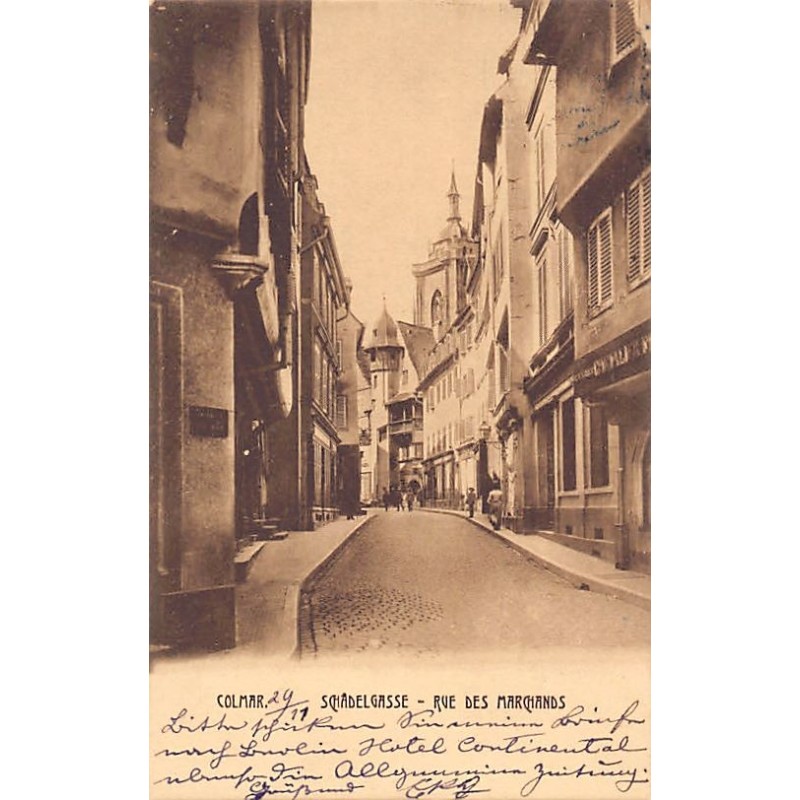 COLMAR. 29/11 SCHÄDELGASSE - RUE DES MARCHANDS
Bitte schicken Sie meine Briefe
nach Berlin Hotel Continental
ebenso die Allgemeine Zeitung.
Gruß und